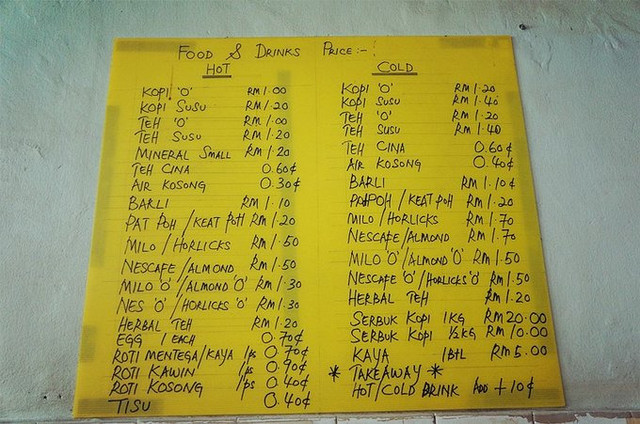 FOOD & DRINKS PRICE:-
HOT
KOPI 'O' RM 1.00
KOPI SUSU RM 1.20
TEH 'O' RM 1.00
TEH SUSU RM 1.20
MINERAL SMALL RM 1.20
TEH CINA 0.60¢
AIR KOSONG 0.30¢
BARLI RM 1.10
PAT POH / KEAT POH RM 1.20
MILO / HORLICKS RM 1.50
NESCAFE / ALMOND RM 1.50
MILO 'O' / ALMOND 'O' RM 1.30
NES 'O' / HORLICKS 'O' RM 1.30
HERBAL TEH RM 1.20
EGG 1 EACH 0.70¢
ROTI MENTEGA / KAYA 1ps 0.70¢
ROTI KAWIN 1ps 0.90¢
ROTI KOSONG 1ps 0.40¢
TISU 0.40¢
COLD
KOPI 'O' RM 1.20
KOPI SUSU RM 1.40
TEH 'O' RM 1.20
TEH SUSU RM 1.40
TEH CINA 0.60¢
AIR KOSONG 0.40¢
BARLI RM 1.10¢
PATPOH / KEAT POH RM 1.20
MILO / HORLICKS RM 1.70
NESCAFE / ALMOND RM 1.70
MILO 'O' / ALMOND 'O' RM 1.50
NESCAFE 'O' / HORLICKS 'O' RM 1.50
HERBAL TEH RM 1.20
SERBUK KOPI 1KG RM 20.00
SERBUK KOPI 1/2KG RM 10.00
KAYA 1BTL RM 5.00
* TAKEAWAY *
HOT/COLD DRINK ADD + 10¢